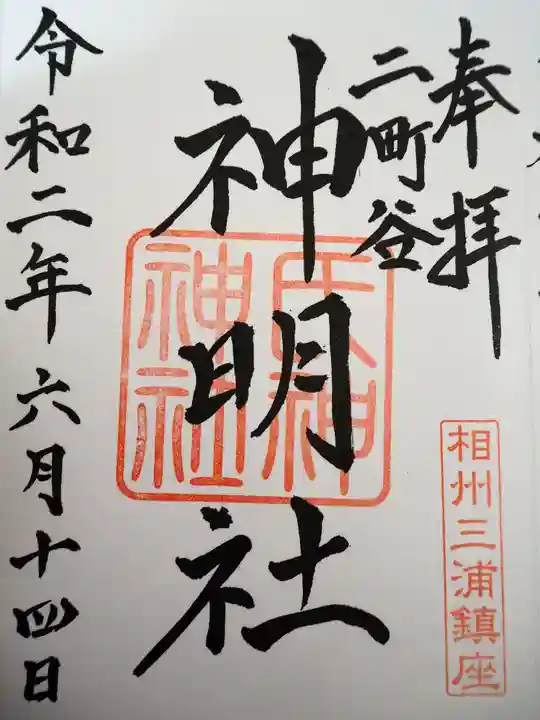 奉拝
二町谷
神明社
相州三浦鎮座
天神
神社
令和二年六月十四日